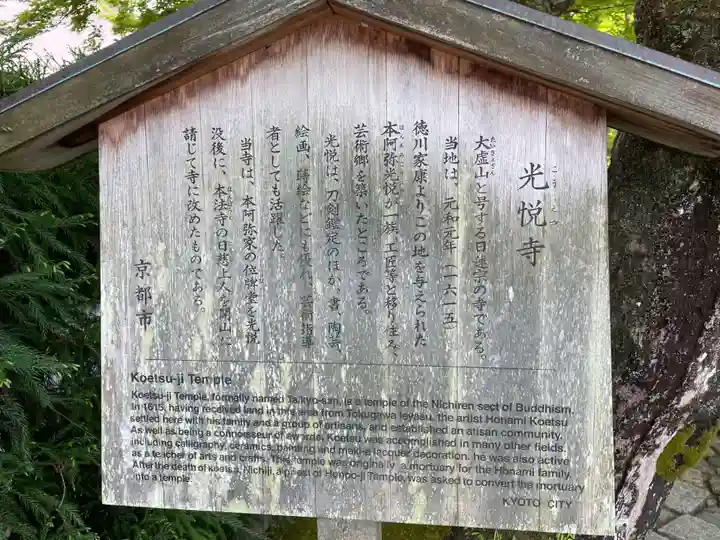 光悦寺
こうえつじ
大虚山と号する日蓮宗の寺である。
たいきょざん
当地は、元和元年（一六一五）
徳川家康よりこの地を与えられた
本阿弥光悦が一族、工匠等と移り住み、
ほんあみ
芸術郷を築いたところである。
光悦は、刀剣鑑定のほか、書、陶芸、
絵画、蒔絵などにも優れ、芸術指導
者としても活躍した。
当寺は、本阿弥家の位牌堂を光悦
没後に、本法寺の日慈上人を開山に
請じて寺に改めたものである。
京都市
Koetsu-ji Temple
Koetsu-ji Temple, formerly named Taikyo-san, is a temple of the Nichiren sect of Buddhism.
In 1615, having received land in this area from Tokugawa Ieyasu, the artist Honami Koetsu
settled here with his family and a group of artisans, and established an atisan community.
As well as being a connoisseur of swords, Koetsu was accomplished in many other fields,
including calligraphy, ceramics, painting and maki-e lacquer decoration. he was also active
as a teacher of arts and crafts. This temple was originally a mortuary for the Honami family.
After the death of koetsu, Nichiji, a priest of Honpo-ji Temple, was asked to convert the mortuary
into a temple.
KYOTO CITY